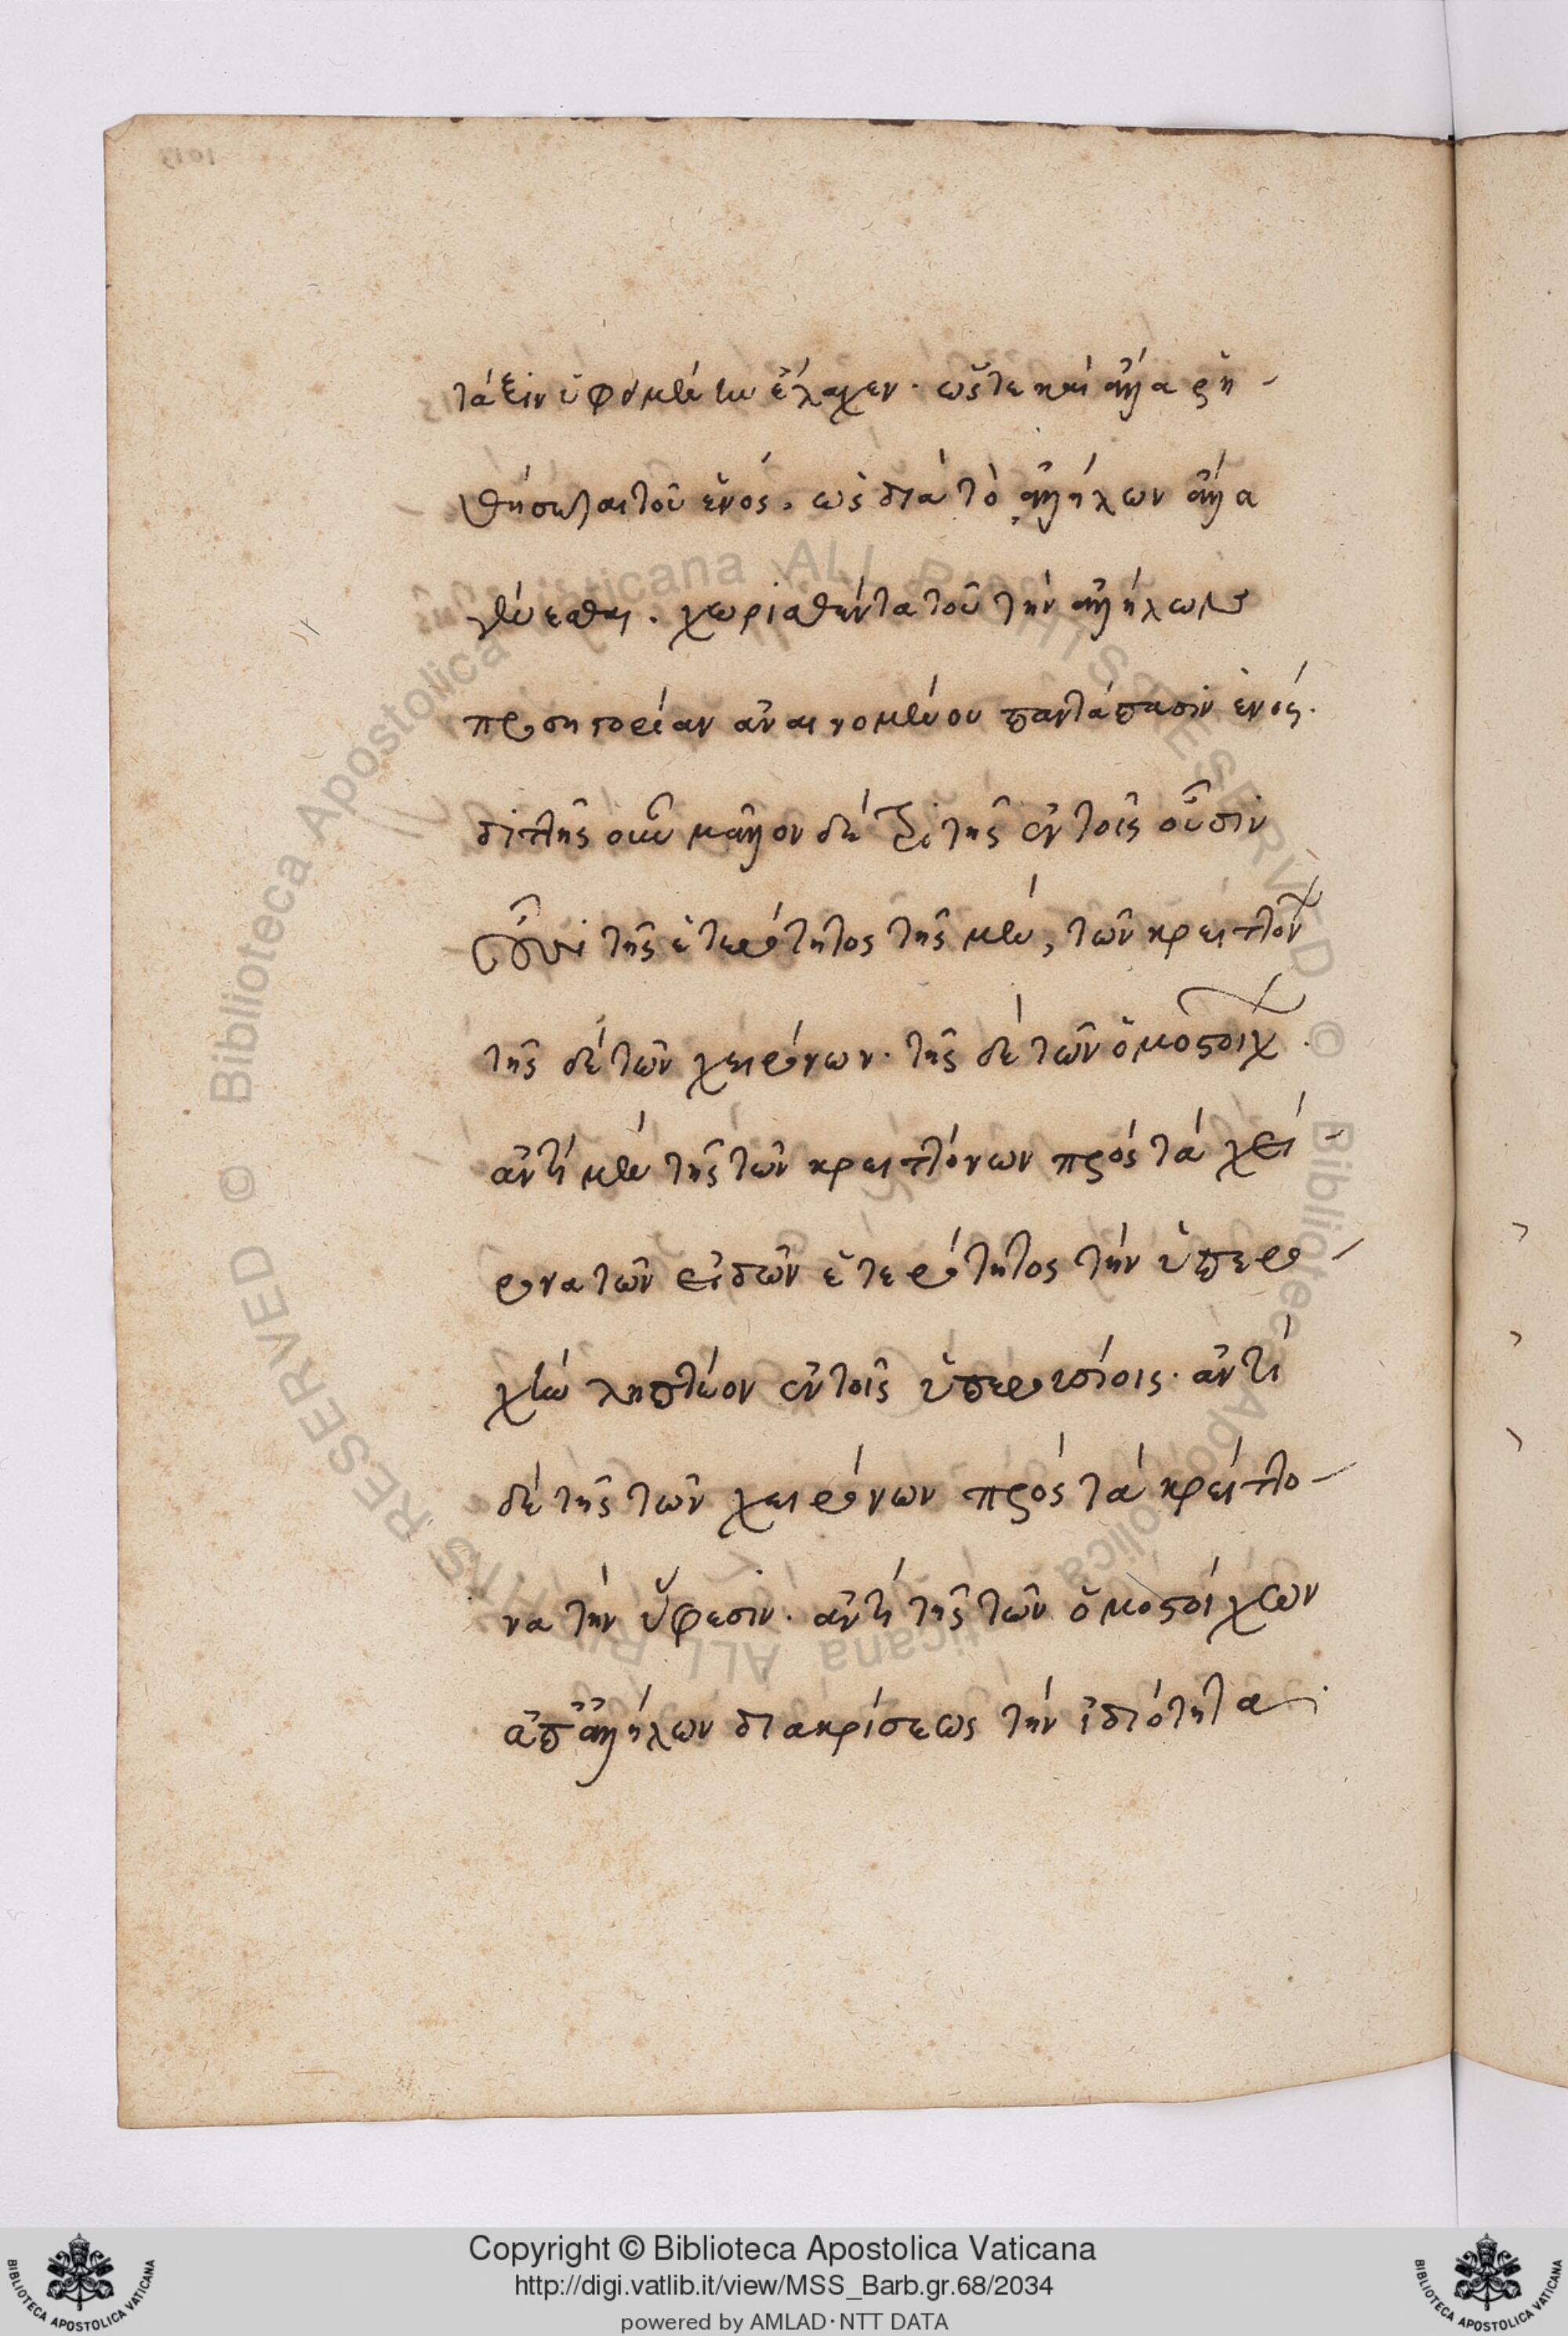 τάξιν ὑφειμένην ἔλαχεν· ὥστε καὶ ἄλλα ῥη-
θήσεται τοῦ ἑνός, ὡς διὰ τὸ ἀλλήλων ἄλλα
γενέσθαι. χωρισθέντα τοῦ τὴν ἀλλήλων
προσηγορίαν ἀναινομένου παντάπασιν ἑνός.
διττῆς οὖν μᾶλλον δὲ τριτῆς ἐν τοῖς οὖσιν
οὔσης τῆς ἑτερότητος τῆς μὲν, τῶν κρειττόν
τῆς δὲ τῶν χειρόνων· τῆς δὲ τῶν ὁμοστοίχ
ἀντὶ μὲν τῆς τῶν κρειττόνων πρὸς τὰ χεί-
ρονα τῶν εἰδῶν ἑτερότητος τὴν ὑπερο-
χὴν ληπτέον ἐν τοῖς ὑπερουσίοις· ἀντὶ
δὲ τῆς τῶν χειρόνων πρὸς τὰ κρείττο-
να τὴν ὕφεσιν· ἀντὶ τῆς τῶν ὁμοστοίχων
ἀπ' ἀλλήλων διακρίσεως τὴν ἰδιότητα.
Copyright © Biblioteca Apostolica Vaticana
http://digi.vatlib.it/view/MSS_Barb.gr.68/2034
powered by AMLAD·NTT DATA